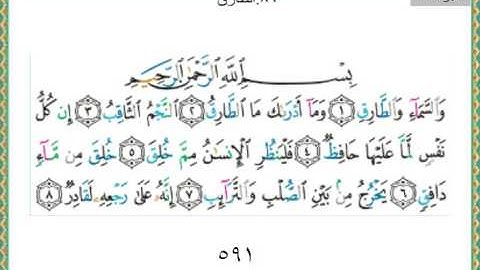 ٨٦.الطارق
بِسْمِ ٱللَّهِ ٱلرَّحْمَٰنِ ٱلرَّحِيمِ
وَٱلسَّمَآءِ وَٱلطَّارِقِ ۝١ وَمَآ أَدْرَىٰكَ مَا ٱلطَّارِقُ ۝٢ ٱلنَّجْمُ ٱلثَّاقِبُ ۝٣ إِن كُلُّ
نَفْسٍ لَّمَّا عَلَيْهَا حَافِظٌ ۝٤ فَلْيَنظُرِ ٱلْإِنسَٰنُ مِمَّ خُلِقَ ۝٥ خُلِقَ مِن مَّآءٍ
دَافِقٍ ۝٦ يَخْرُجُ مِنۢ بَيْنِ ٱلصُّلْبِ وَٱلتَّرَآئِبِ ۝٧ إِنَّهُۥ عَلَىٰ رَجْعِهِۦ لَقَادِرٌ ۝٨
٥٩١